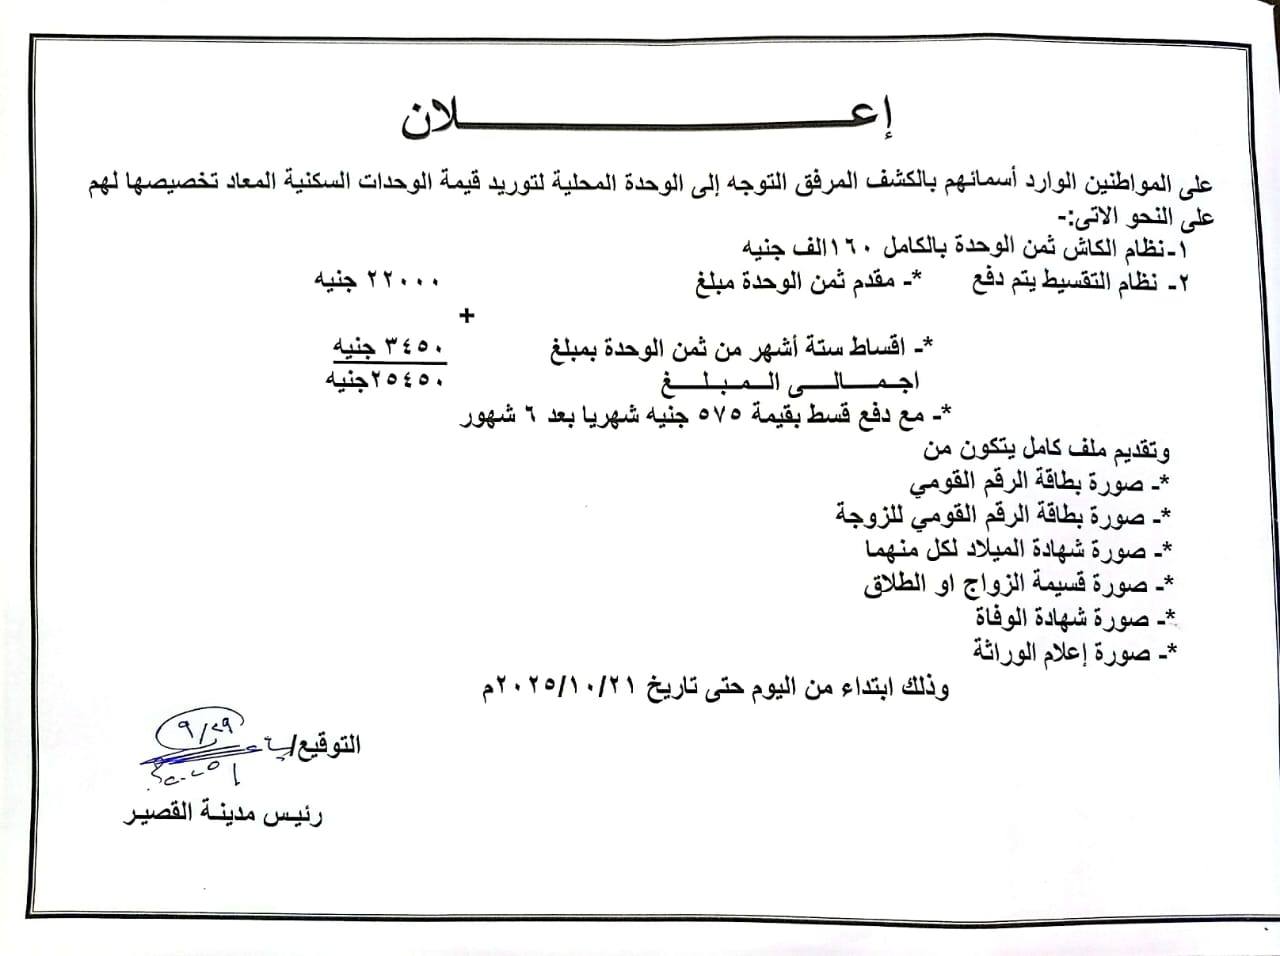 إعـــــــــلان
على المواطنين الوارد أسمائهم بالكشف المرفق التوجه إلى الوحدة المحلية لتوريد قيمة الوحدات السكنية المعاد تخصيصها لهم
على النحو الاتى:-
١-نظام الكاش ثمن الوحدة بالكامل ١٦٠الف جنيه
٢- نظام التقسيط يتم دفع *- مقدم ثمن الوحدة مبلغ ٢٢٠٠٠ جنيه
+
*- اقساط ستة أشهر من ثمن الوحدة بمبلغ ٣٤٥٠ جنيه
اجـمــــالــــى الـمـبـلـــغ ٢٥٤٥٠جنيه
*- مع دفع قسط بقيمة ٥٧٥ جنيه شهريا بعد ٦ شهور
وتقديم ملف كامل يتكون من
*- صورة بطاقة الرقم القومي
*- صورة بطاقة الرقم القومي للزوجة
*- صورة شهادة الميلاد لكل منهما
*- صورة قسيمة الزواج او الطلاق
*- صورة شهادة الوفاة
*- صورة إعلام الوراثة
وذلك ابتداء من اليوم حتى تاريخ ٢٠٢٥/١٠/٢١م
التوقيع/
٩/٢٩
رئيس مدينة القصير